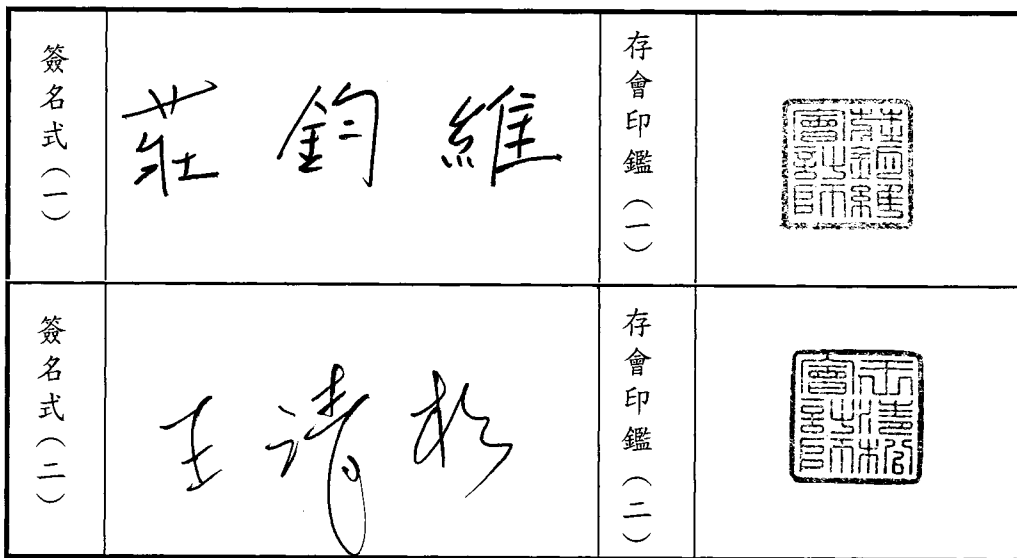 簽名式(一)
莊鈞維
存會印鑑(一)
莊鈞維會計師
簽名式(二)
王清松
存會印鑑(二)
王清松會計師